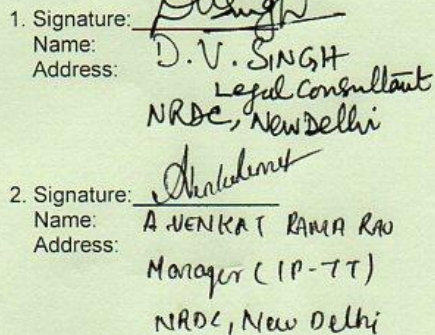 1. Signature: DVSingh
Name: D. V. SINGH
Address: Legal Consultant
NRDC, New Delhi
2. Signature:
Name: A VENKAT RAMA RAO
Address:
Manager (IP-TT)
NRDC, New Delhi